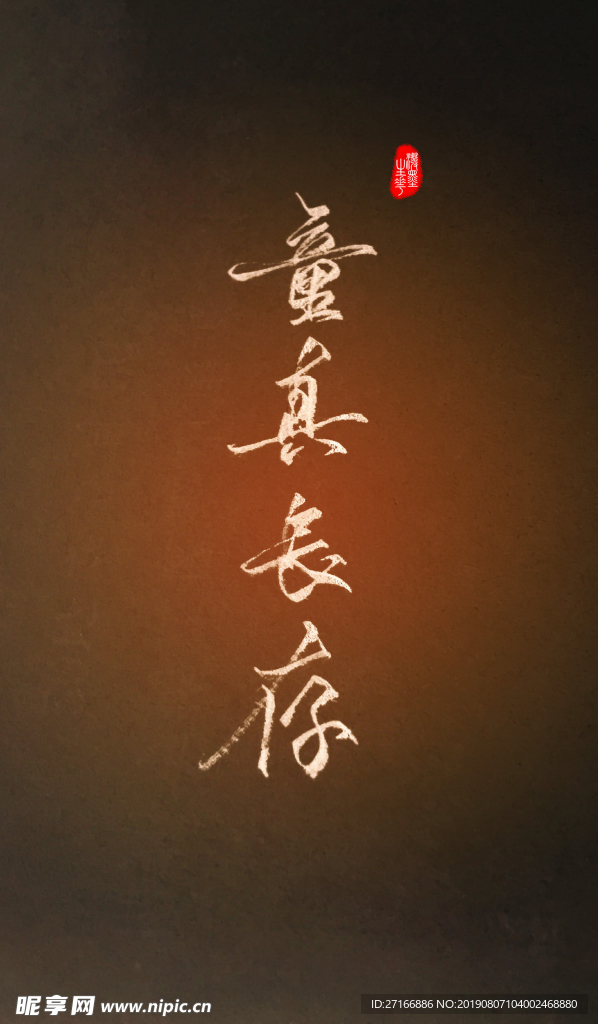 童真长存
昵享网 www.nipic.cn
ID:27166886 NO:20190807104002468880